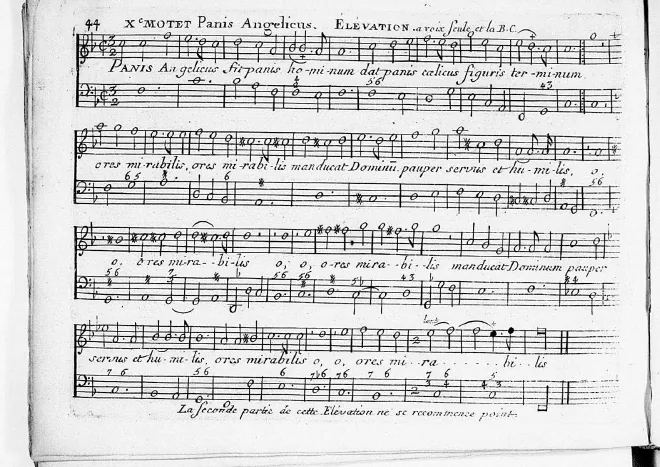 44 X.e MOTET Panis Angelicus. ELÉVATION. a voix seule et la B.C.
PANIS An gelicus fit panis ho-mi-num dat panis cœlicus figuris ter-mi-num.
4 5 6 4 3
ores mi-rabilis, ores mi-rabi-lis manducat Dominũ pauper servus et hu-mi-lis, o,
6 5 6 5 6
o, ores mi-ra--bi-lis o, o, o-res mira--bi-lis manducat Dominum pauper
5 6 5 6 5 6 4 3
servus et hu-mi-lis, ores mirabilis o, o, ores mi--ra - - - - - - bi--lis
7 6 7 6
La seconde partie de cette Elévation ne se recommence point.